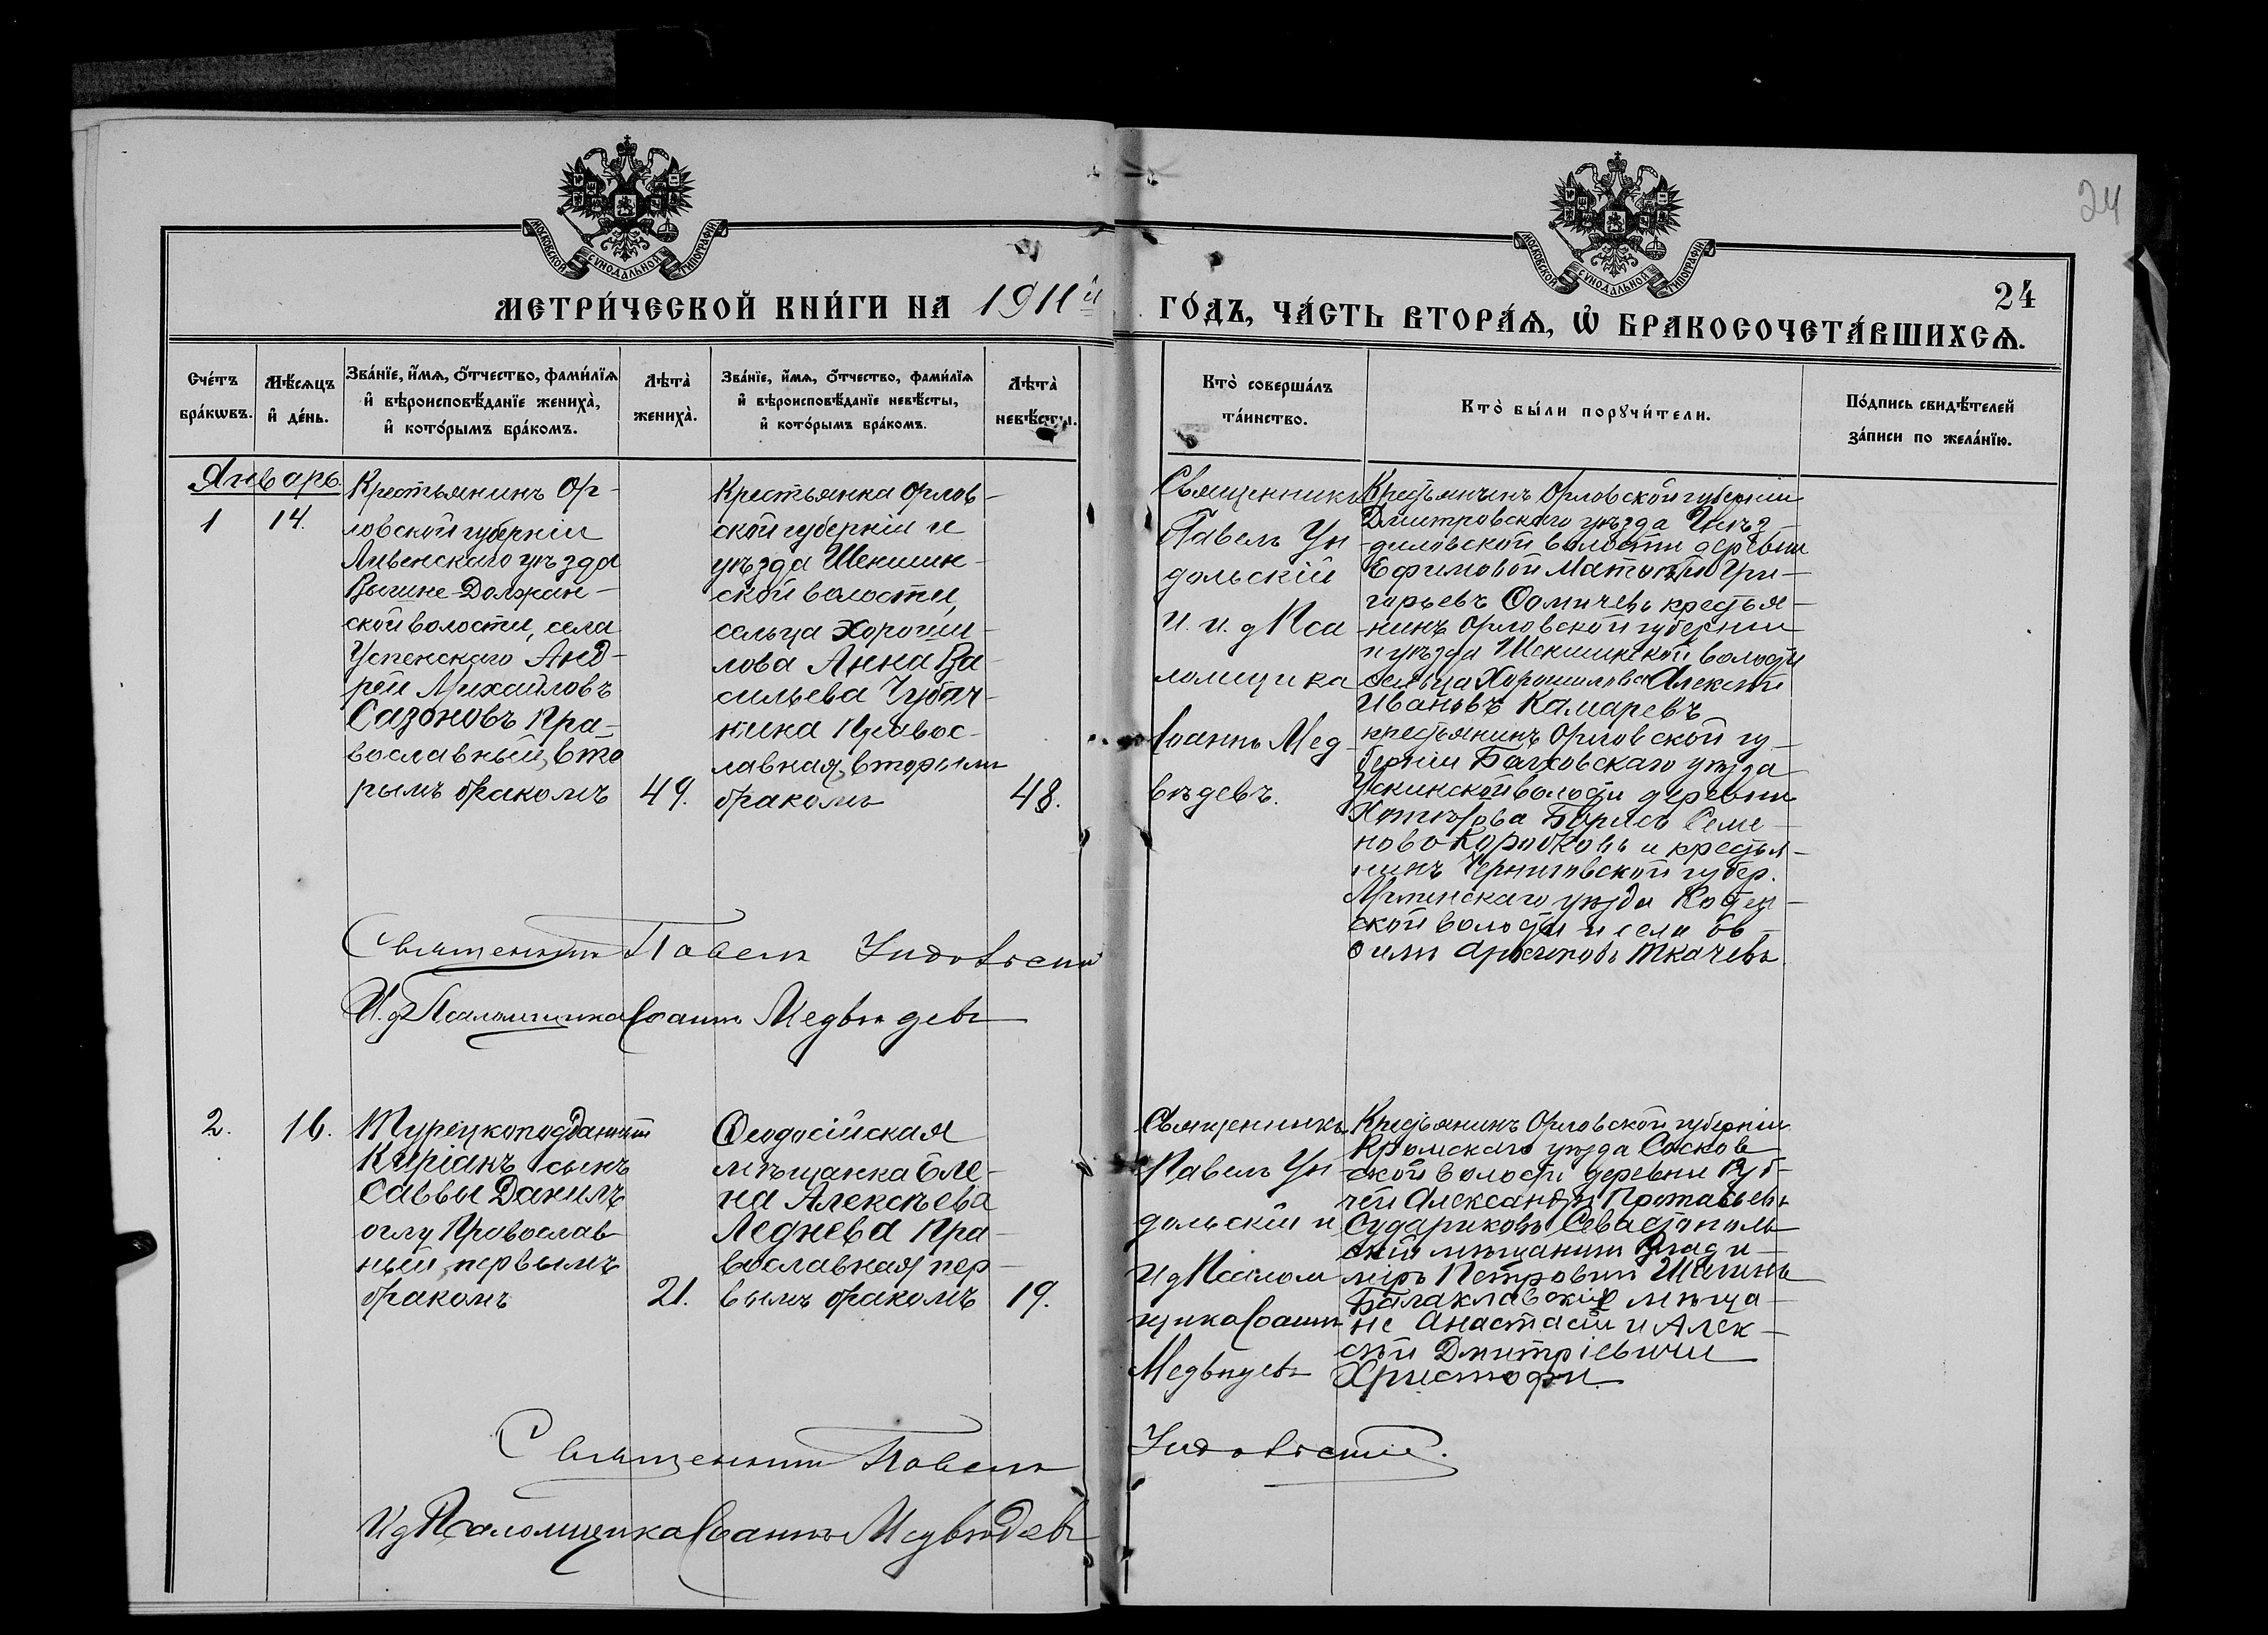 24
МОСКОВСКОЙ СѴНОДАЛЬНОЙ ТИПОГРАФІИ
МОСКОВСКОЙ СѴНОДАЛЬНОЙ ТИПОГРАФІИ
24
МЕТРИ́ЧЕСКОЙ КНИ́ГИ НА 1911й
ГО́ДЪ, ЧА́СТЬ ВТОРА́Ѧ, Ѡ҆ БРАКОСОЧЕТА́ВШИХСѦ.
Сче́тъ
бра́кѡвъ.
Мѣ́сѧцъ
и҆ де́нь.
Зва́нїе, и҆́мѧ, о҆́тчество, фами́лїѧ
и҆ вѣроисповѣ́данїе жениха̀,
и҆ кото́рымъ бра́комъ.
Лѣта̀
жениха̀.
Зва́нїе, и҆́мѧ, о҆́тчество, фами́лїѧ
и҆ вѣроисповѣ́данїе невѣ́сты,
и҆ кото́рымъ бра́комъ.
Лѣта̀
невѣ́сты.
Кто̀ соверша́лъ
та́инство.
Кто̀ бы́ли порꙋчи́тели.
По́дпись свидѣ́телей
за́писи по жела́нїю.
Январь.
1
14.
Крестьянинъ Ор-
ловской губерніи
Ливенскаго уѣзда
Вышне-Должан-
ской волости, села
Успенскаго Анд-
рей Михайловъ
Сазоновъ Пра-
вославный, вто
рымъ бракомъ
49.
Крестьянка Орлов-
ской губерніи и
уѣзда Шеншин-
ской волости,
сельца Хороши-
лова Анна Ва-
сильева
Правос-
лавная, вторымъ
бракомъ
48.
Священникъ
Павелъ Ун
дольскій
и. и. д Пса
ломщика
Іоаннъ Мед
вѣдевъ.
Крестьянинъ Орловской губерніи
Дмитровскаго уѣзда
диловской волости деревни
Ефимовой Матвѣй Гри-
горьевъ Фомичевъ крестья-
нинъ Орловской губерніи
и уѣзда Шеншинской волости
сельца Хорошилова Алексѣй
Ивановъ Камаревъ
крестьянинъ Орловской гу-
берніи Болховскаго уѣзда
волости деревни
Борисъ Семе-
новъ Коробковъ и крестья-
нинъ Черниговской губер.
Мглинскаго уѣзда
ской волости и села
Ткачевъ
Священникъ Павелъ Ундольскій
И.д Псаломщика Іоаннъ Медвѣдевъ
2.
16.
Турецкоподданный
Киріанъ сынъ
Саввы Данилъ
оглу Провослав
ный, первымъ
бракомъ
21.
Ѳеодосійская
мѣщанка Еле-
на Алексѣева
Леднева Пра-
вославная, пер-
вымъ бракомъ
19.
Священникъ
Павелъ Ун
дольскій и
И д Псалом
щика Іоаннъ
Медвѣдевъ
Крестьянинъ Орловской губерніи
Кромскаго уѣзда Сосков
ской волости деревни
Александръ Протасьевъ
Судариковъ Севастополь
скій мѣщанинъ Влади-
міръ Петровичъ
Балаклавскіе мѣща-
не Анастасій и Алек-
сѣй Дмитріевичи
Христофи.
Священникъ Павелъ
Ундольскій.
И д Псаломщика Іоаннъ Медвѣдевъ